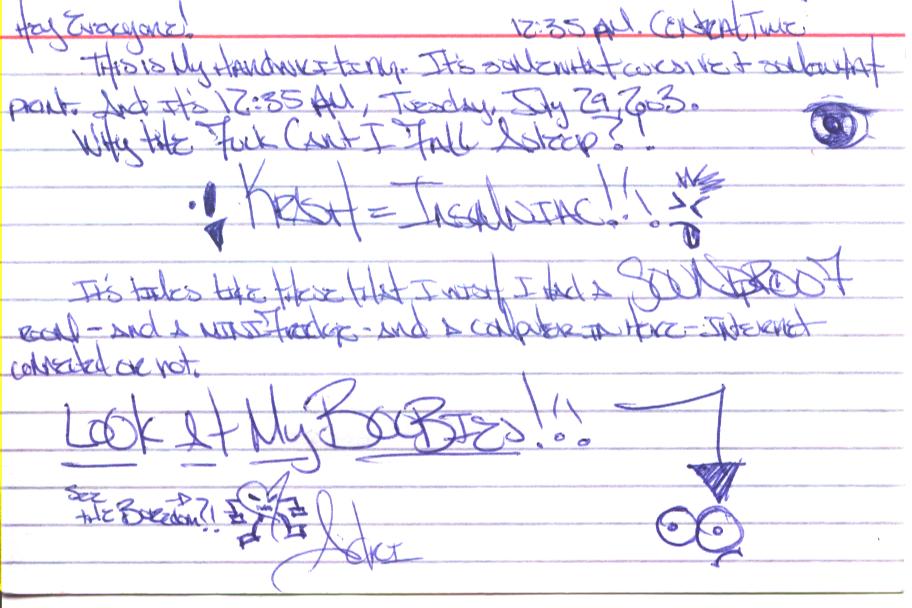 Hey Everyone! 12:35 AM. Central Time
This is My Handwriting. It's somewhat cursive & somewhat
print. And it's 12:35 AM, Tuesday, July 29, 2003.
Why the Fuck Can't I Fall Asleep?!
= Insomniac!!!
It's times like these that I wish I had a SOUNDPROOF
room - and a mini Fridge - and a computer in here - Internet
connected or not.
Look At My Boobies!!!
See
the Boredom?!